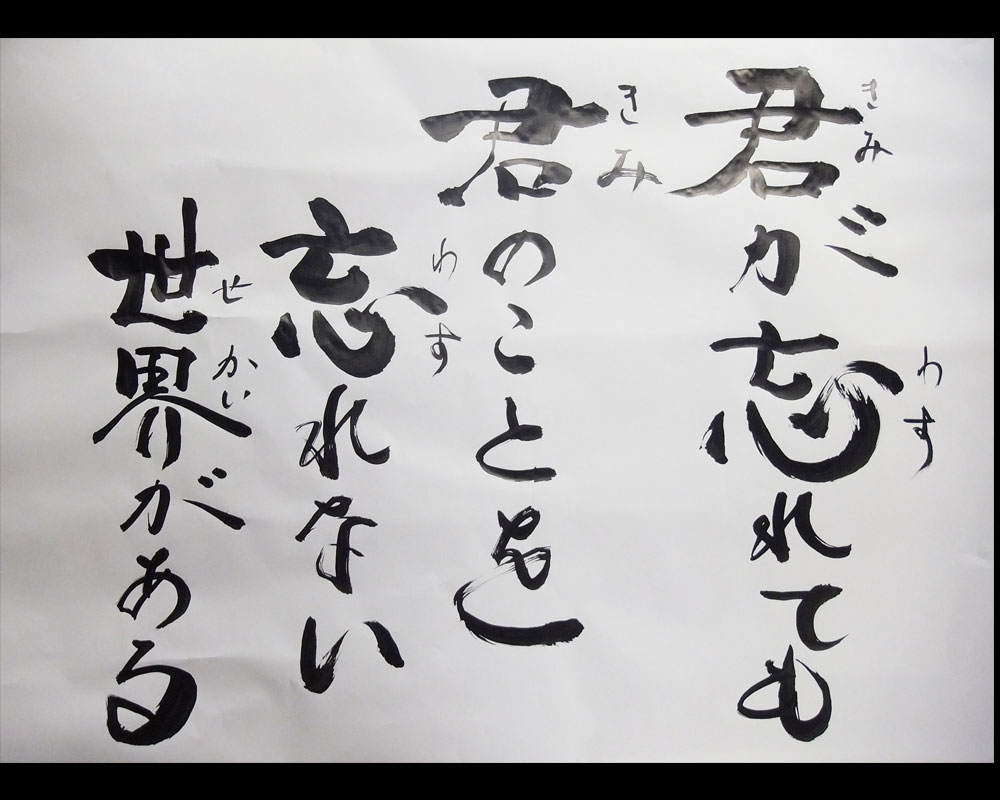 君が忘れても
君のことを
忘れない
世界がある
きみ
わす
きみ
わす
せかい